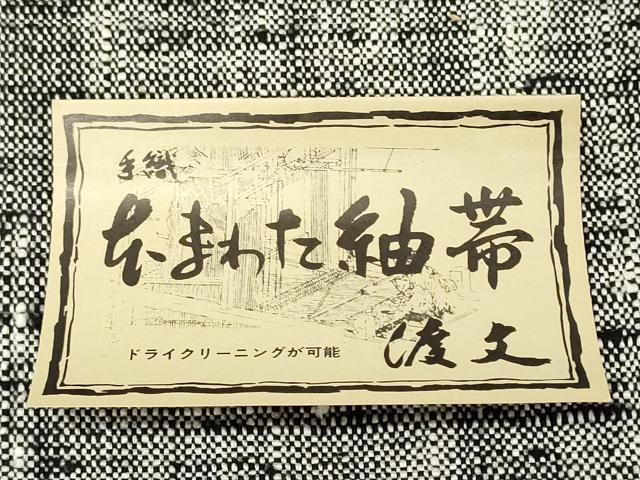 手織
まわた紬帯
ドライクリーニングが可能
渡文